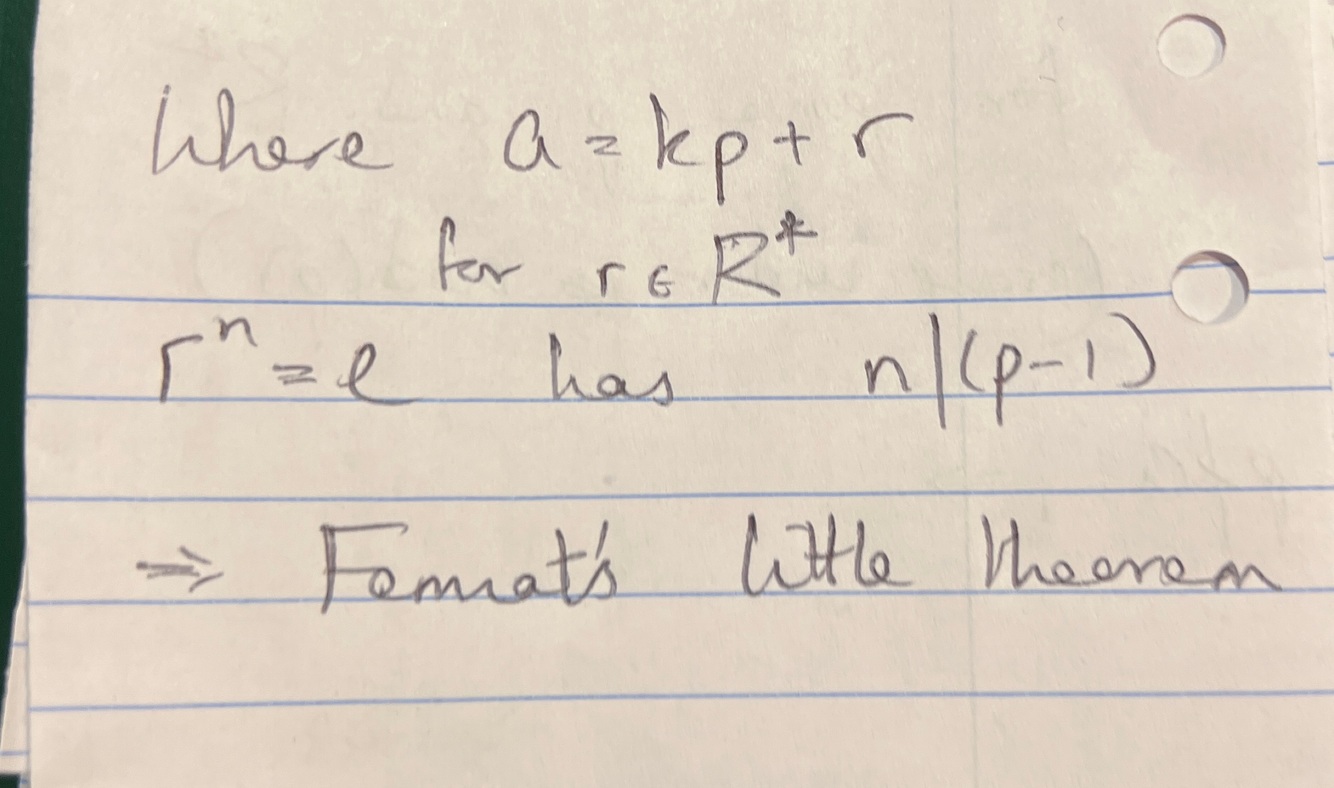 Where a = kp + r
for r ∈ R*
rⁿ = e has n|(p-1)
⇒ Fermat's little theorem